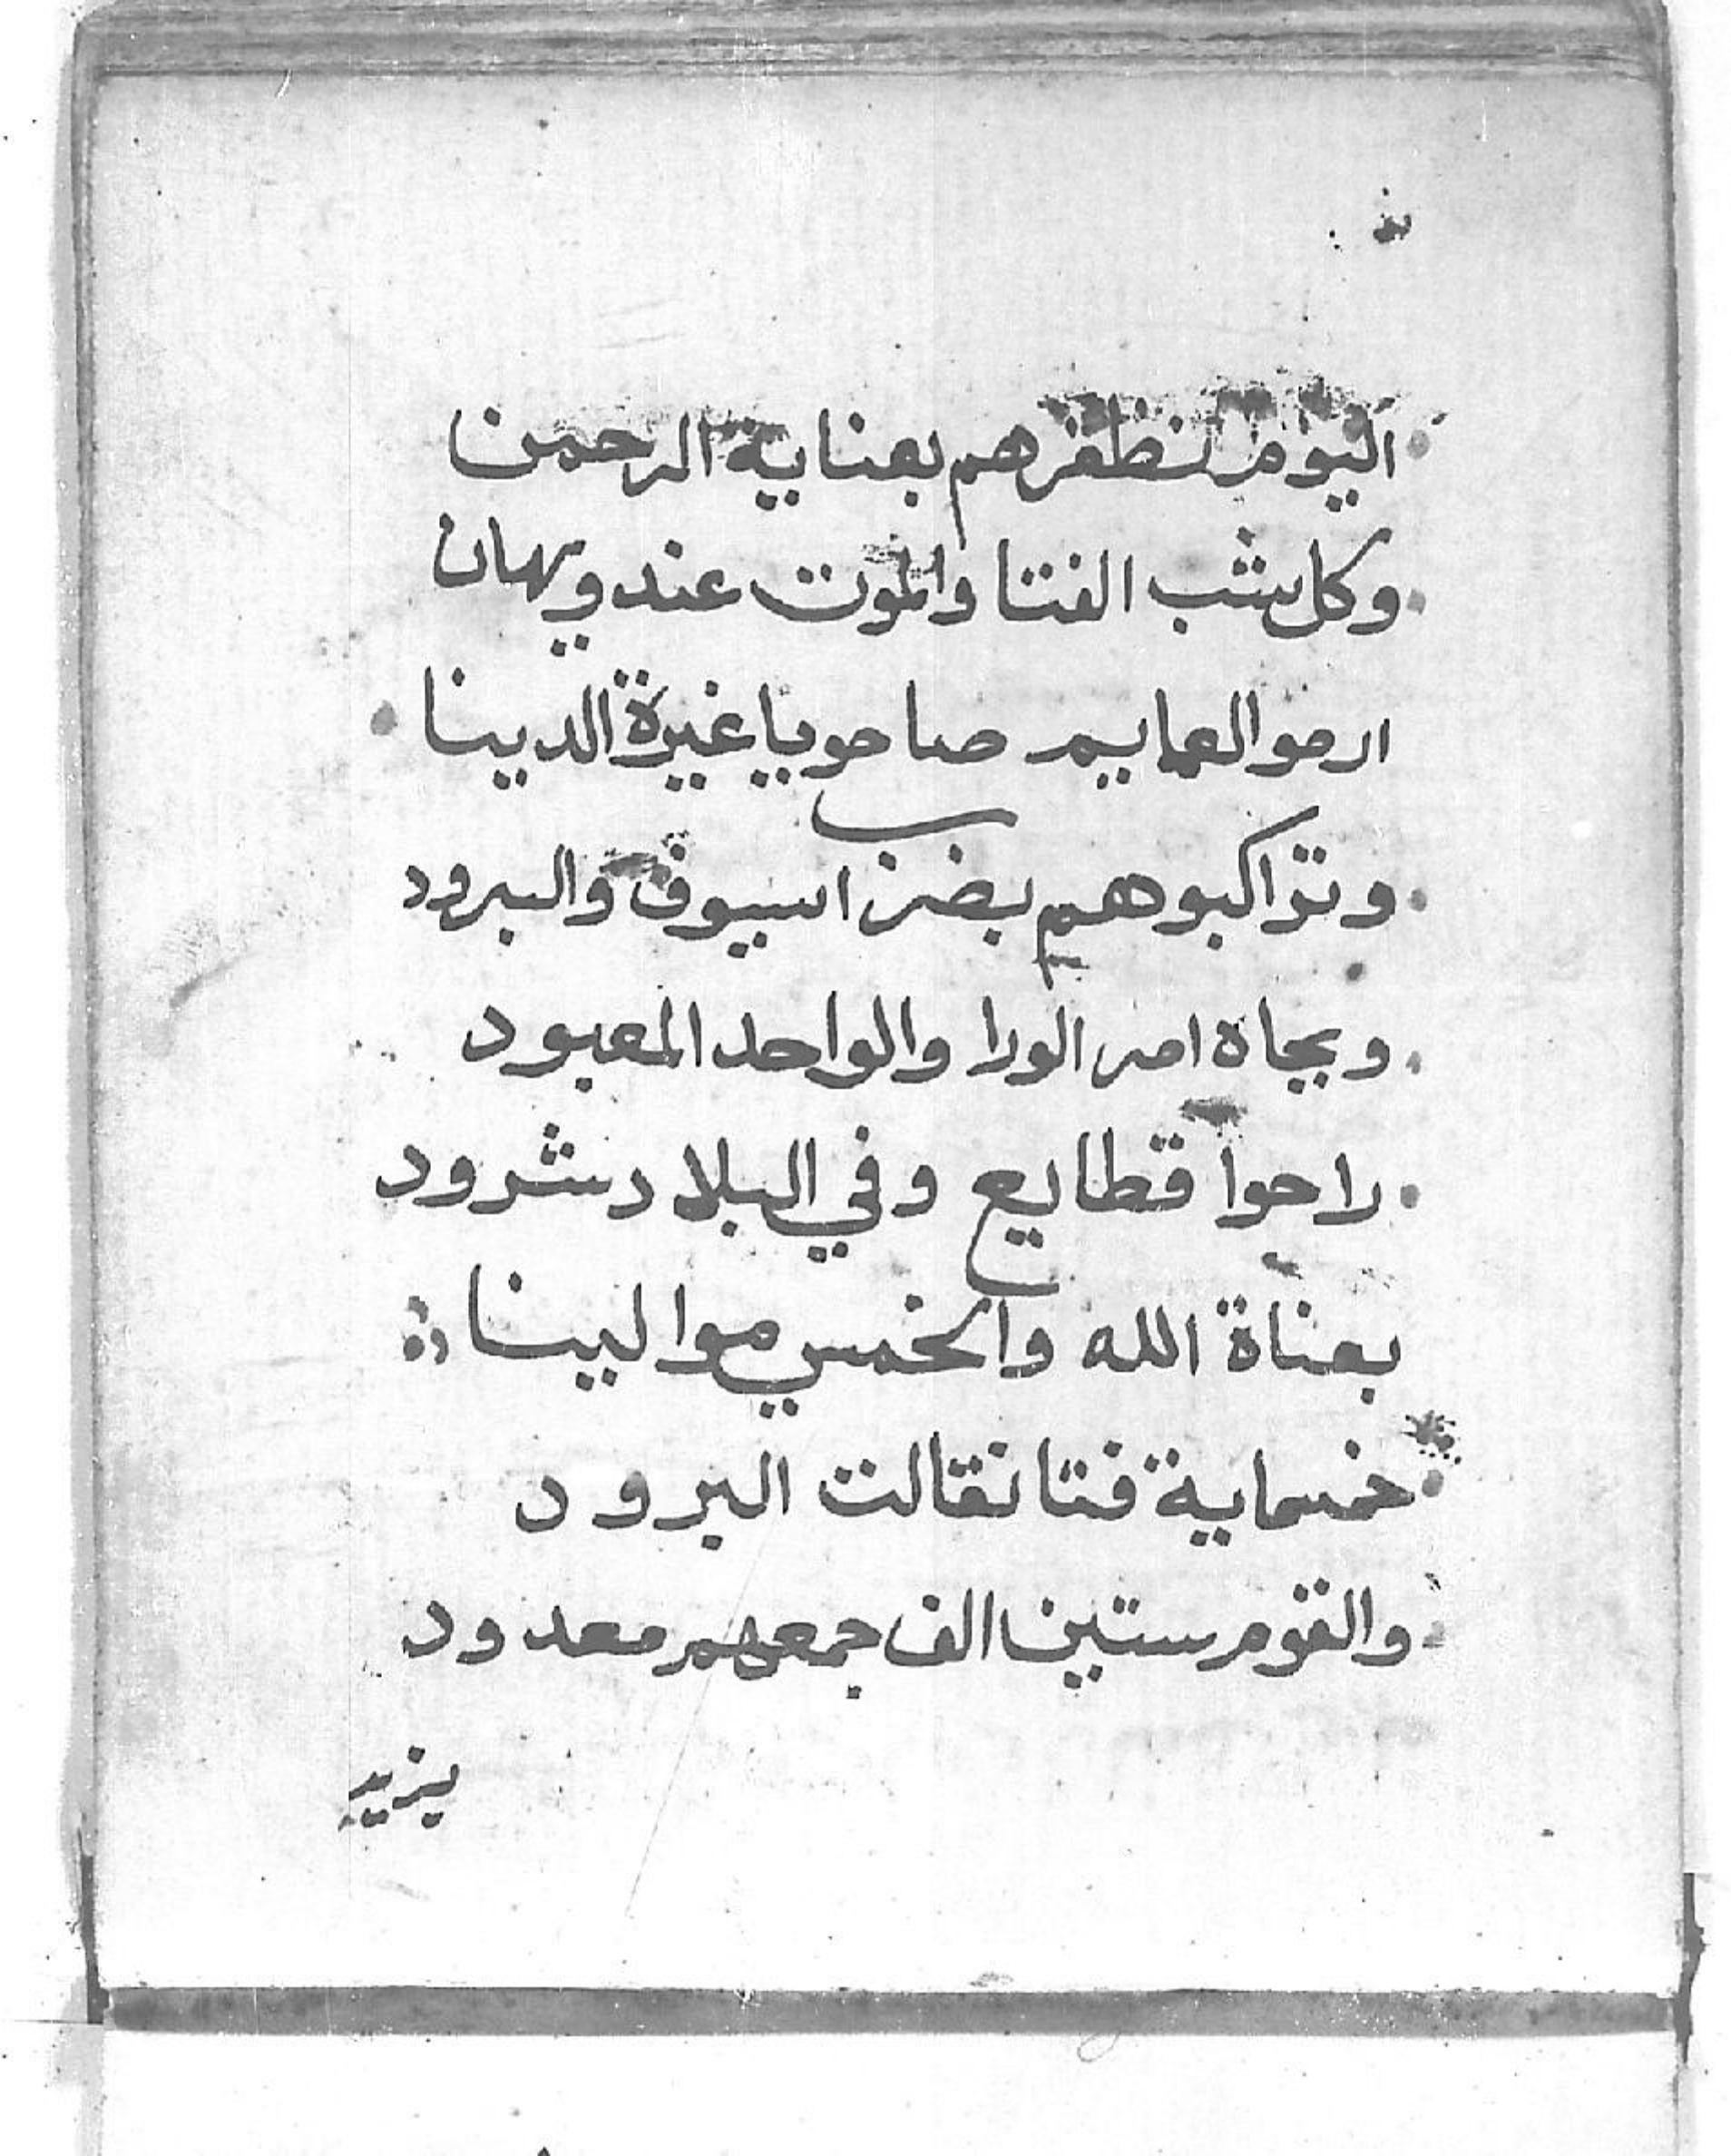 اليوم نظفرهم بعناية الرحمن
وكل شب الفتا والموت عندو يهان
ارموالعمايم صاحو يا غيرة الدينا
وتراكبوهم بضرب اسيوف والبرود
وبجاه امر الورا والواحد المعبود
راحوا قطايع وفي البلاد شرود
بعناة الله والخمس موالينا
خمسماية فتا نقالت البرود
والقوم ستين الف جمعهم معدود
يزيد